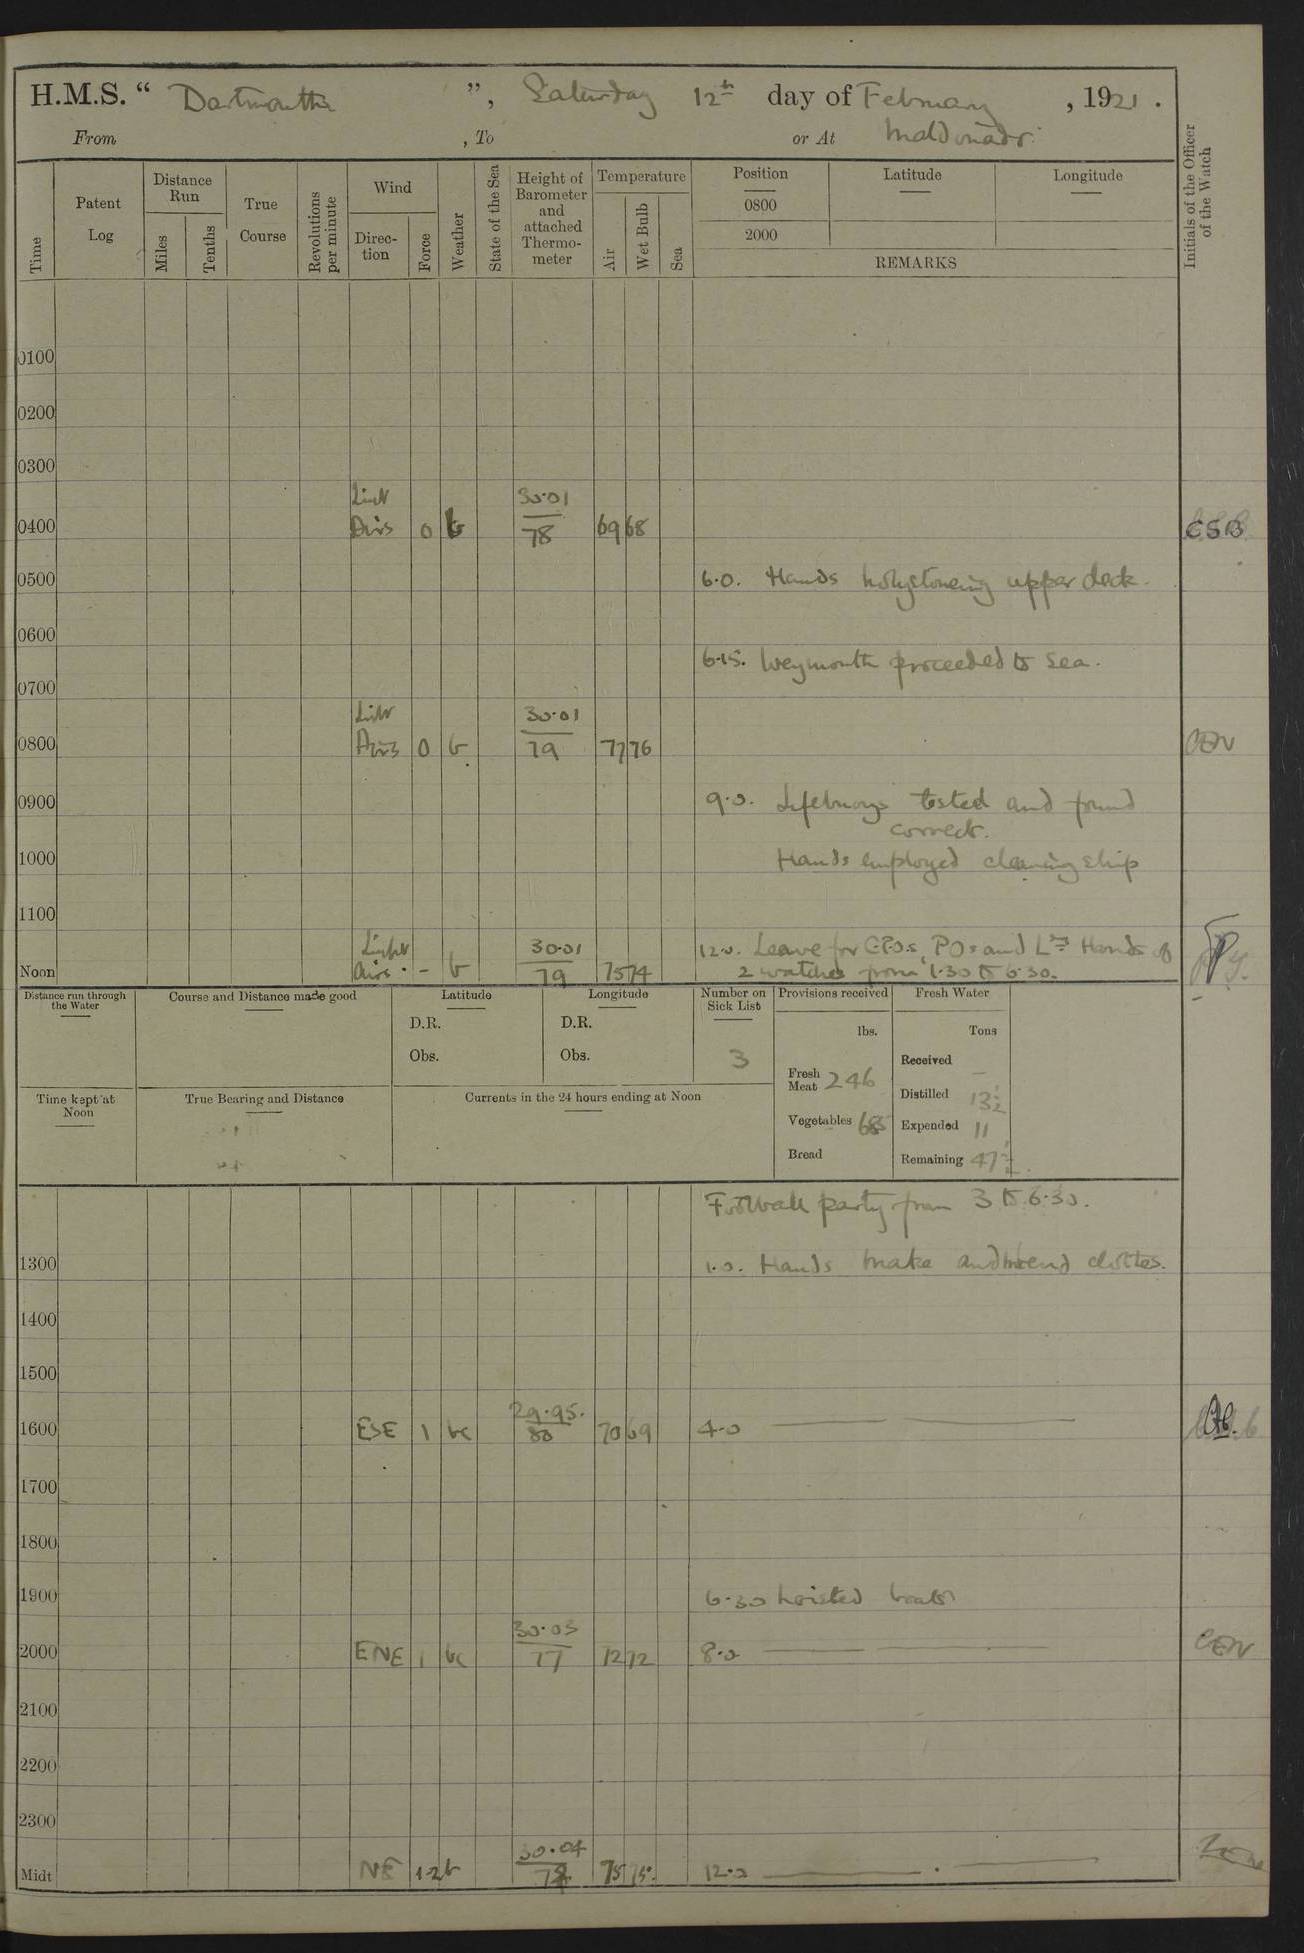 H.M.S. “ Dartmouth ”, Saturday 12th day of February , 1921 .
From , To or At Maldonado
Time
Patent Log
Distance Run
Miles
Tenths
True Course
Revolutions per minute
Wind
Direction
Force
Weather
State of the Sea
Height of Barometer and attached Thermometer
Temperature
Air
Wet Bulb
Sea
Position
0800
2000
Latitude
Longitude
REMARKS
Initials of the Officer of the Watch
0100
0200
0300
Light 30.01
0400 Airs 0 b 78 69 68 CSB
0500 6.0. Hands holystoneing upper deck.
0600
6.15. Weymouth proceeded to sea.
0700
Light 30.01
0800 Airs 0 b 79 77 76 CEN
0900 9.0. Lifebuoys tested and found
correct.
1000 Hands employed cleaning ship
1100
Light 30.01 12.0. Leave for C.P.Os, POs and Ldg Hands of
Noon Airs. - b 79 75 74 2 watches from 1.30 to 6.30.
Distance run through the Water
Course and Distance made good
Latitude
D.R.
Obs.
Longitude
D.R.
Obs.
Number on Sick List
3
Provisions received
lbs.
Fresh Meat 246
Vegetables
Bread
Fresh Water
Tons
Received —
Distilled 13½
Expended 11
Remaining 47½
Time kept at Noon
True Bearing and Distance
Currents in the 24 hours ending at Noon
Football party from 3 to 6.30.
1300 1.0. Hands make and mend clothes.
1400
1500
29.95.
1600 ESE 1 bc 80 70 69 4.0
1700
1800
1900 6.30 hoisted boats
30.03
2000 ENE 1 bc 77 72 72 8.0 CEN
2100
2200
2300
30.04
Midt NE 1-2 b 75 75. 12.0